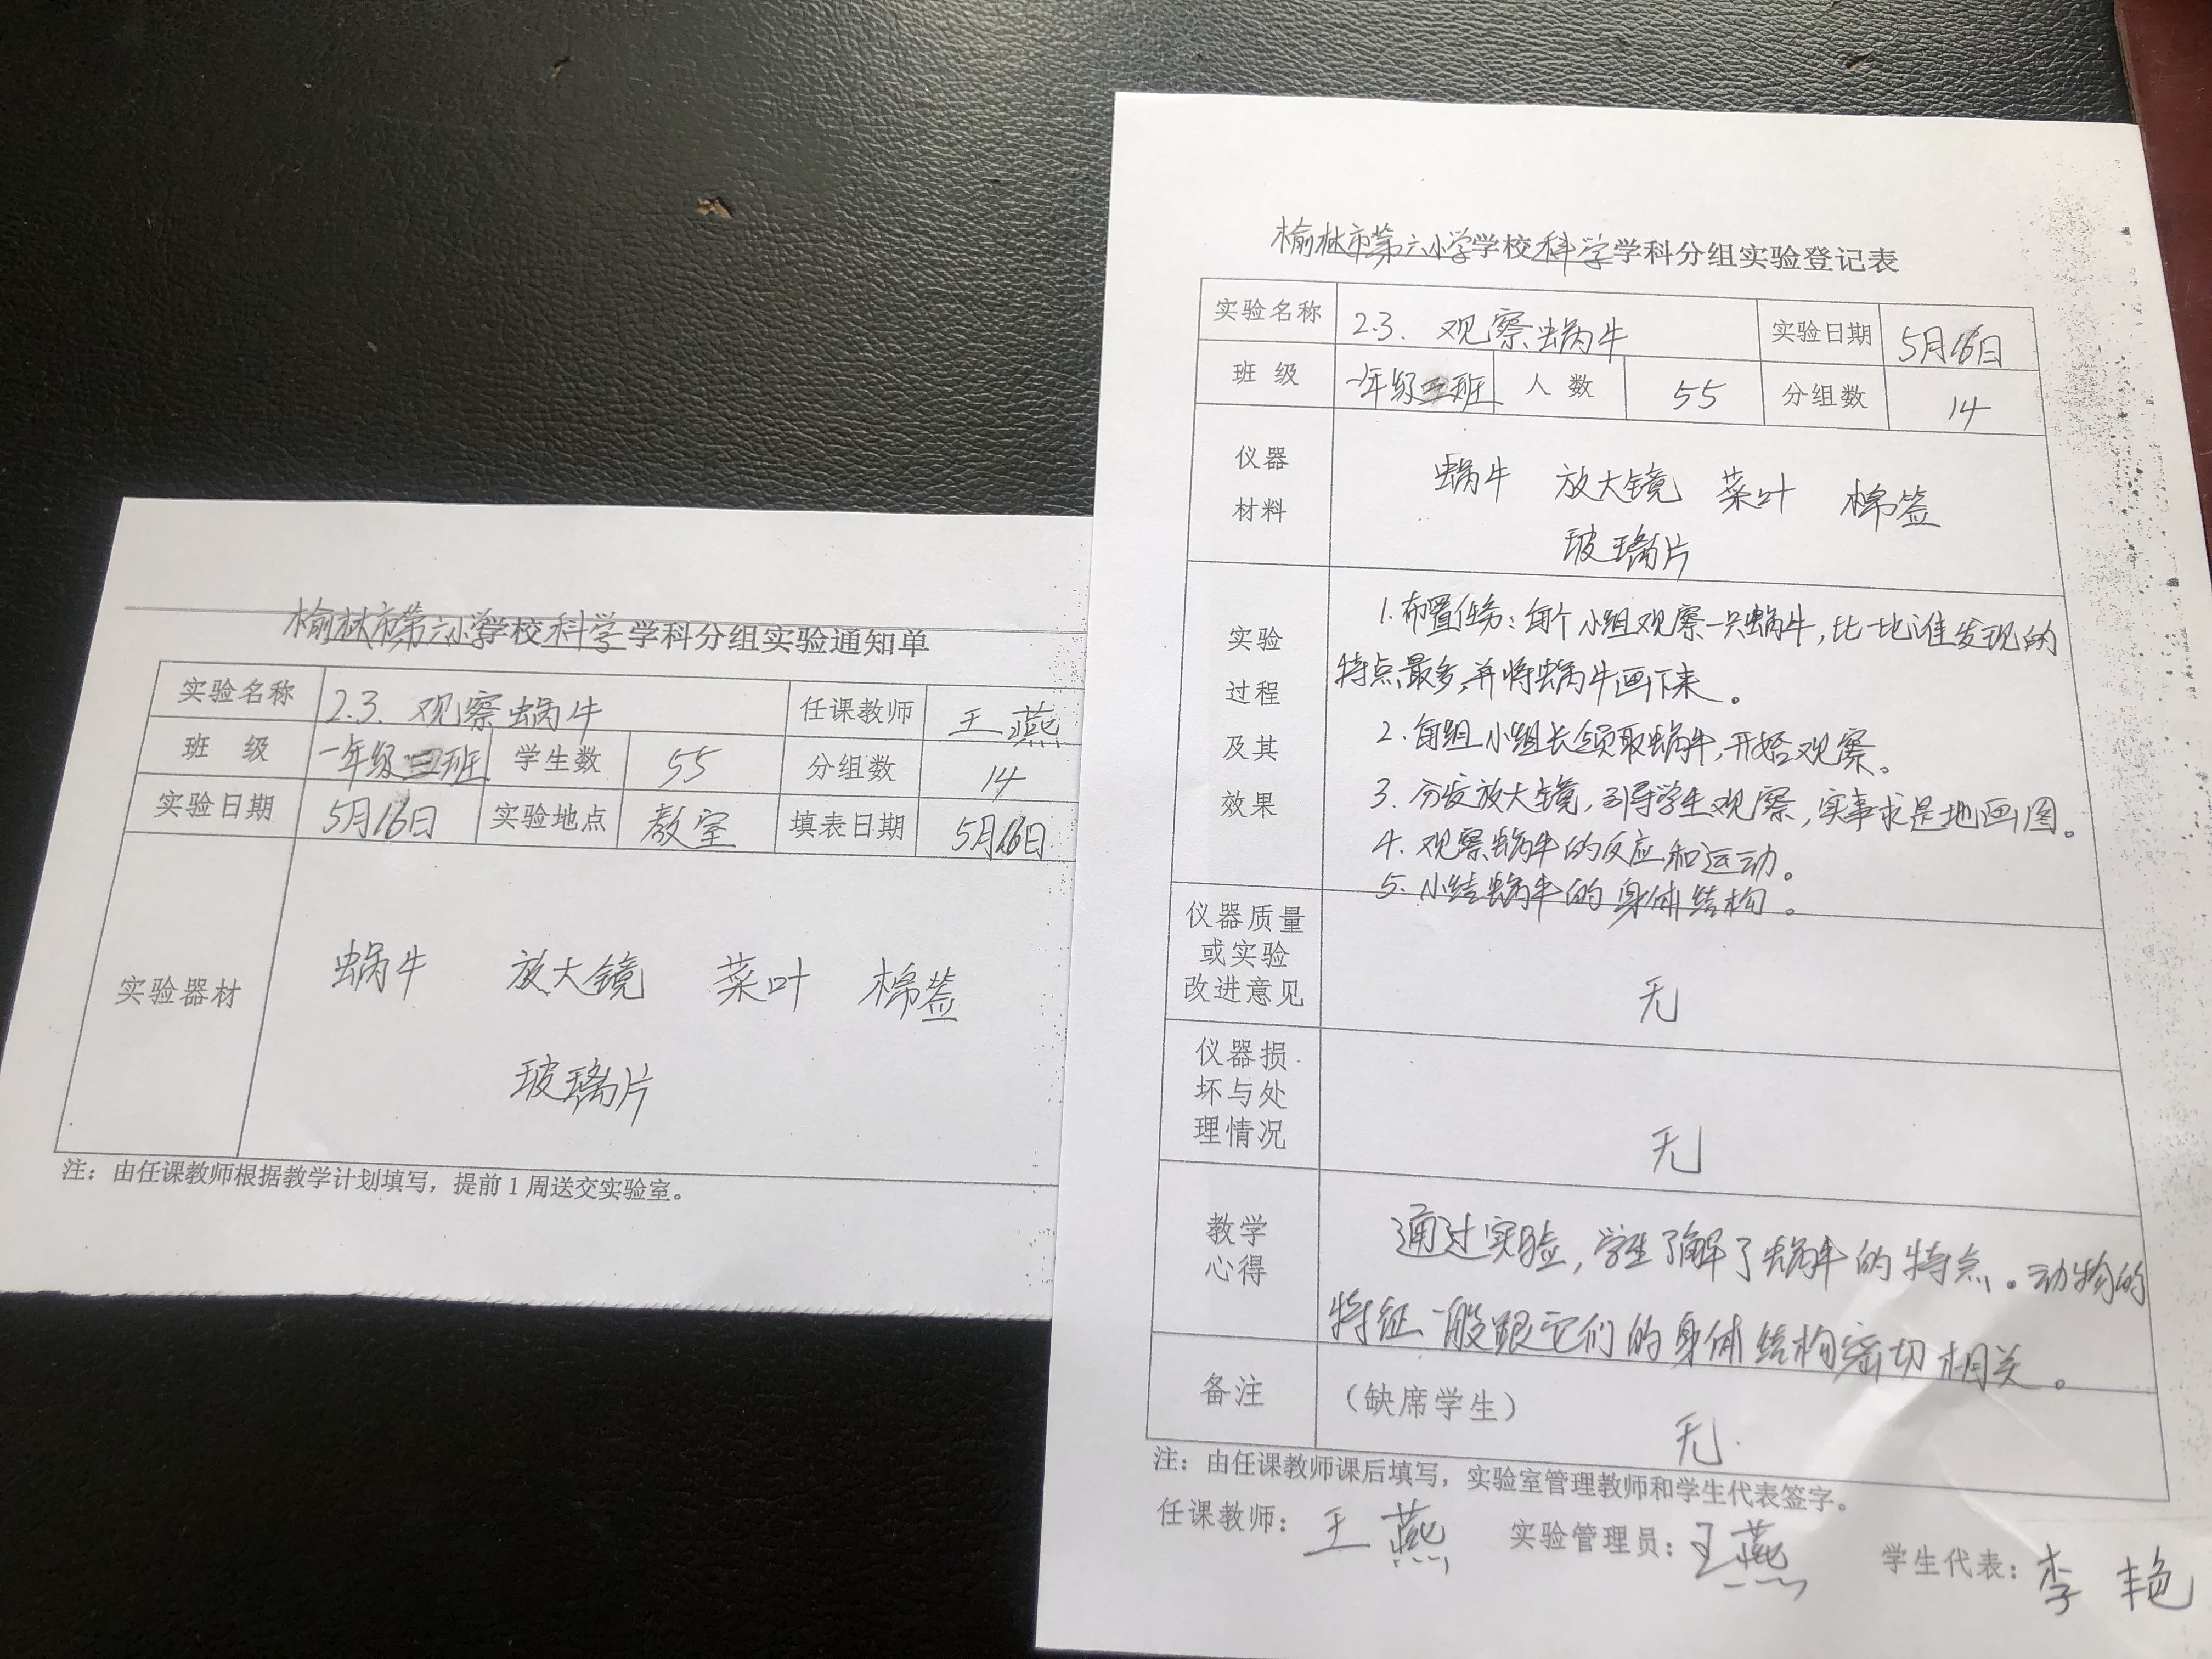 榆林市第六小学学校科学学科分组实验通知单
实验名称 2.3. 观察蜗牛 任课教师 王燕
班 级 一年级三班 学生数 55 分组数 14
实验日期 5月16日 实验地点 教室 填表日期 5月16日
实验器材
蜗牛 放大镜 菜叶 棉签
玻璃片
注：由任课教师根据教学计划填写，提前1周送交实验室。
榆林市第六小学学校科学学科分组实验登记表
实验名称 2.3. 观察蜗牛 实验日期 5月16日
班 级 一年级三班 人 数 55 分组数 14
仪器
材料
蜗牛 放大镜 菜叶 棉签
玻璃片
实验
过程
及其
效果
1.布置任务：每个小组观察一只蜗牛，比一比谁发现的
特点最多，并将蜗牛画下来。
2.每组小组长领取蜗牛，开始观察。
3.分发放大镜，引导学生观察，实事求是地画图。
4.观察蜗牛的反应和运动。
5.小结蜗牛的身体结构。
仪器质量
或实验
改进意见
无
仪器损
坏与处
理情况
无
教学
心得
通过实验，学生了解了蜗牛的特点。动物的
特征一般跟它们的身体结构密切相关。
备注 （缺席学生） 无
注：由任课教师课后填写，实验室管理教师和学生代表签字。
任课教师：王燕 实验管理员：王燕 学生代表：李艳